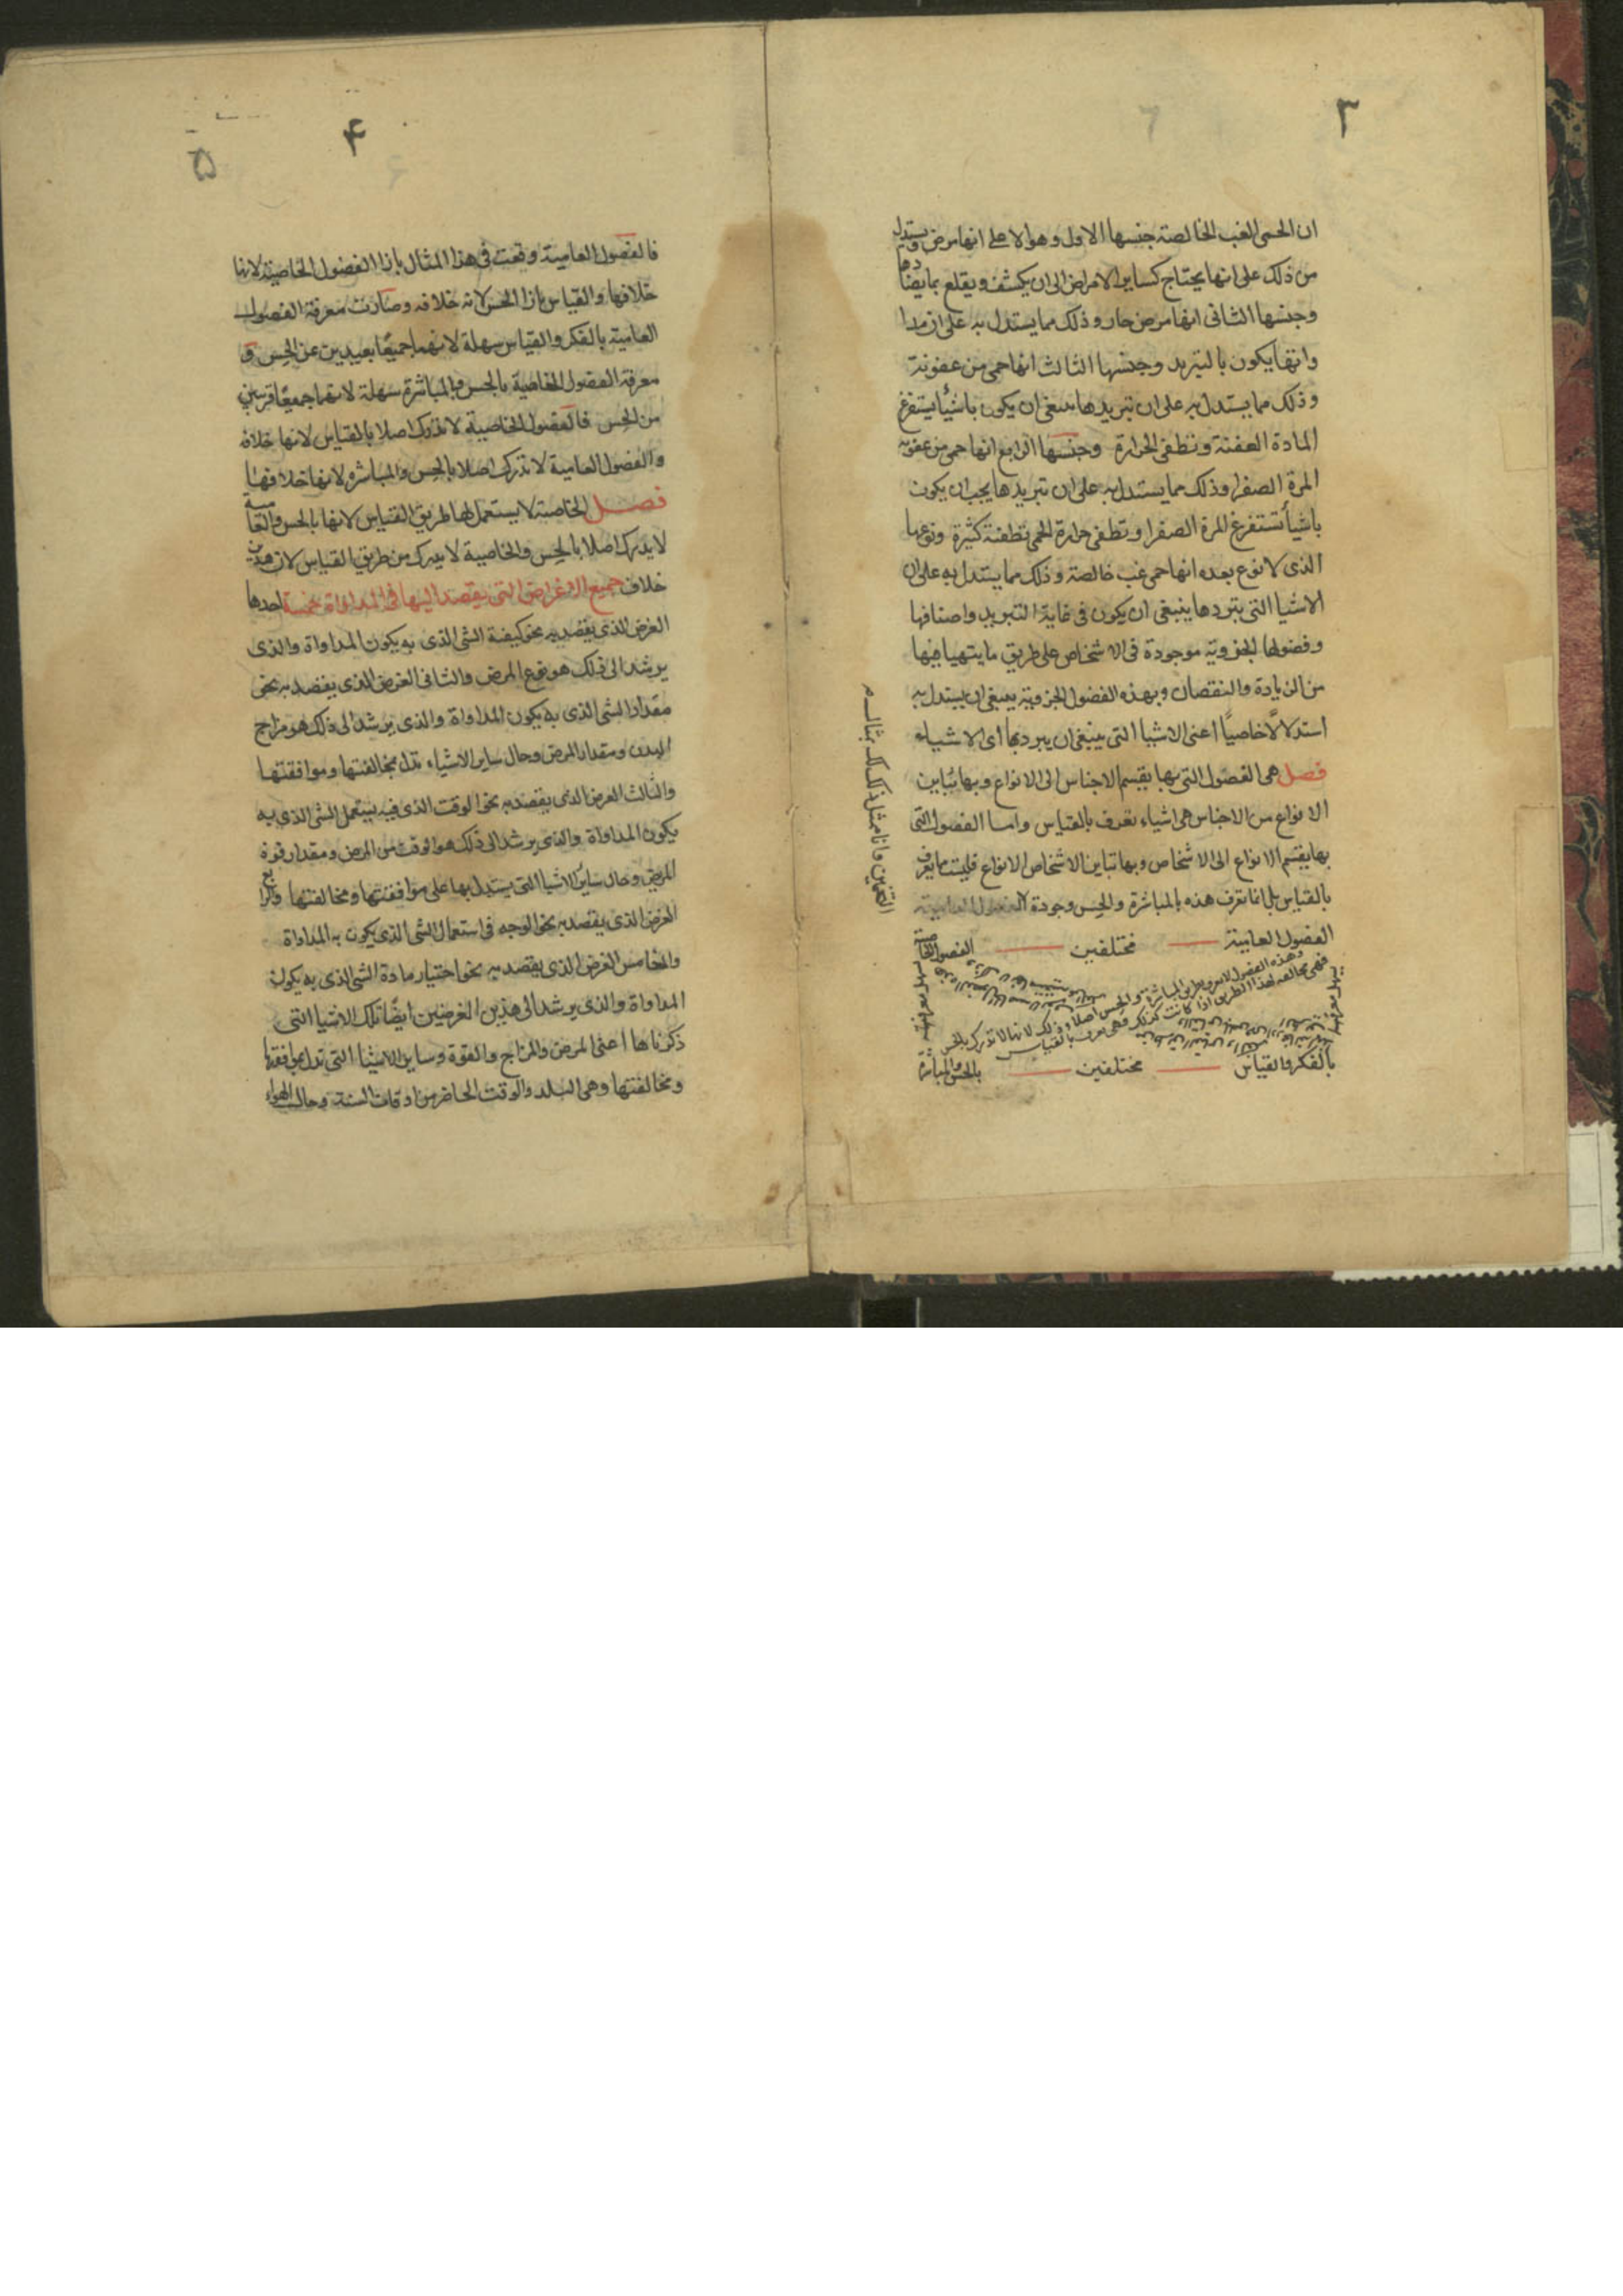 ٣
ان الحمى الغب الخالصة جنسها الاول وهو الاعلى انها مرض ويستدل
من ذلك على انها يحتاج كساير الامراض الى ان يكشف ويقلع بما يضادها
وجنسها الثانى انها مرض حار وذلك مما يستدل به على ان مدا
واتها يكون بالتبريد وجنسها الثالث انها حمى من عفونة
وذلك مما يستدل به على ان تبريدها ينبغى ان يكون باشيأ يستفرغ
المادة العفنة وتطفى الحرارة وجنسها الرابع انها حمى من عفونة
المرة الصفرا وذلك مما يستدل به على ان تبريدها يجب ان يكون
باشيأ تستفرغ المرة الصفرا وتطفى حرارة الحمى تطفئة كثيرة ونوعها
الذى لا نوع بعده انها حمى غب خالصة وذلك مما يستدل به على ان
الاشيا التى تبردها ينبغى ان يكون فى غاية التبريد واصنافها
وفصولها الجزوية موجودة فى الاشخاص على طريق ما يتهيا فيها
من الزيادة والنقصان وبهذه الفصول الجزوية ينبغى ان يستدل به
استدلالًا خاصيًا اعنى الاشيا التى ينبغى ان يبرد بها اى الاشياء
فصل هى الفصول التى بها يقسم الاجناس الى الانواع وبها تباين
الانواع من الاجناس هى اشياء تعرف بالقياس واما الفصول التى
بها يقسم الانواع الى الاشخاص وبها تباين الاشخاص الانواع فليست مما يعرف
بالقياس بل انما تعرف هذه بالمباشرة والحس وجودة
التخمين وانا ممثل ذلك لك بمثال
الفصول العامية مختلفين الفصول الخاصية
بالفكر والقياس مختلفين بالحس والمباشرة
۴
۵
فالفصول العامية وقعت فى هذا المثال بازا الفصول الخاصية لانها
خلافها والقياس بازا الحس لانه خلافه وصارت معرفة الفصول
العامية بالفكر والقياس سهلة لانهما جميعًا بعيدين عن الحس و
معرفة الفصول الخاصية بالحس والمباشرة سهلة لانهما جميعًا قريبين
من الحس فالفصول الخاصية لا تدرك اصلا بالقياس لانها خلافه
والفصول العامية لا تدرك اصلا بالحس والمباشره لانها خلافها
فصل الخاصية لا يستعمل لها طريق القياس لانها بالحس والعامية
لا يدرك اصلا بالحس والخاصية لا يدرك من طريق القياس لان هذين
خلاف جميع الاغراض التى يقصد اليها فى المداواة خمسة احدها
الغرض الذى يقصد به نحو كيفية الشى الذى به يكون المداواة والذى
يرشد الى ذلك هو نوع المرض والثانى الغرض الذى يقصد به نحو
مقدار الشى الذى به يكون المداواة والذى يرشد الى ذلك هو مزاج
البدن ومقدار المرض وحال ساير الاشياء تدل بمخالفتها وموافقتها
والثالث الغرض الذى يقصد به نحو الوقت الذى فيه يستعمل الشى الذى به
يكون المداواة والذى يرشد الى ذلك هو الوقت من المرض ومقدار قوة
المريض وحال ساير الاشيا التى يستدل بها على موافقتها ومخالفتها والرابع
الغرض الذى يقصد به نحو الوجه فى استعمال الشى الذى يكون به المداواة
والخامس الغرض الذى يقصد به نحو اختيار مادة الشى الذى به يكون
المداواة والذى يرشد الى هذين الغرضين ايضًا تلك الاشيا التى
ذكرناها اعنى المرض والمزاج والقوة وساير الاشيا التى تدل بموافقتها
ومخالفتها وهى البلد والوقت الحاضر من اوقات السنة وحال الهواء